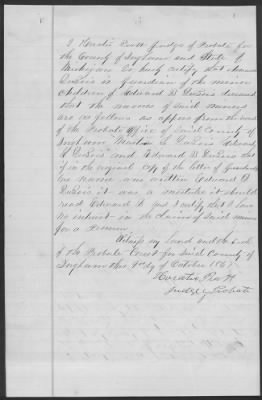 I Horatio Pratt Judge of Probate for
the County of Ingham and State of
Michigan do hereby certify that
DuBois is Guardian of the minor
children of Edward D DuBois deceased
that the names of said minors
are as follows as appears from the record
of the Probate Office of said County of
Ingham DuBois
DuBois and Edward D DuBois
if in the original copy of the letter of
the name was written Edward
DuBois it was a mistake it should
read Edward D and I certify that I have
no interest in the Claim of said minors
for a Pension
Witness my hand and the seal
of the Probate Court for said County of
Ingham this day of October
Horatio Pratt
Judge of Probate